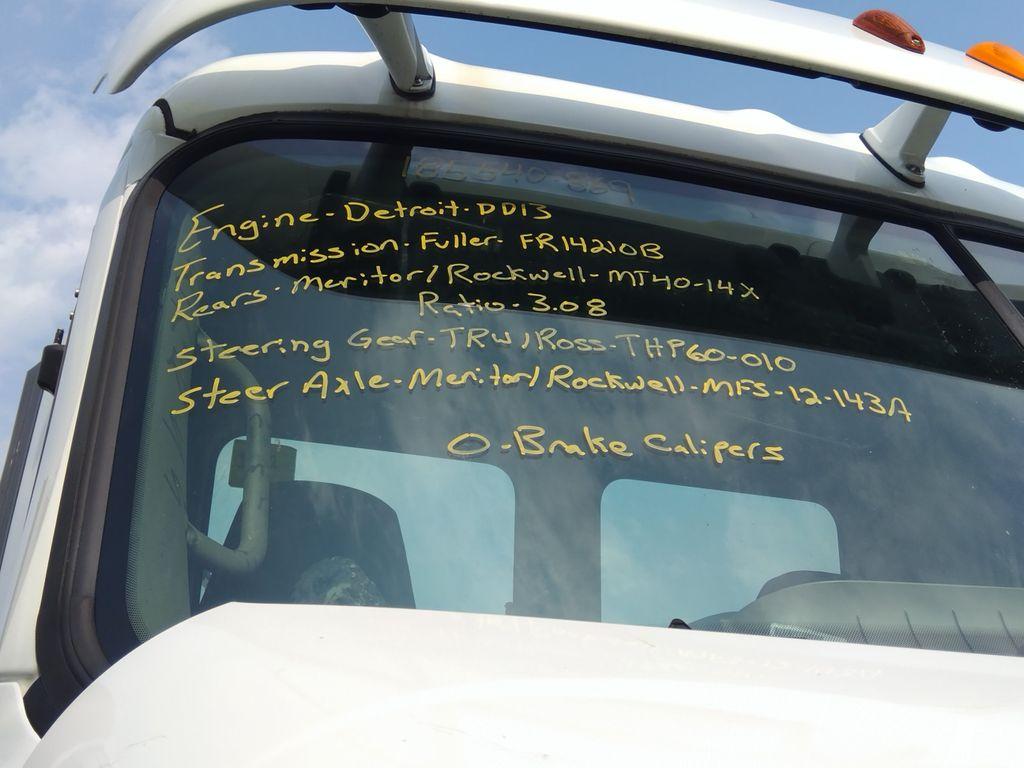 Engine-Detroit-DD13
Transmission-Fuller-FR14210B
Rears-Meritor/Rockwell-MT40-14X
Ratio-3.08
Steering Gear-TRW/Ross-THP60-010
Steer Axle-Meritor/Rockwell-MFS-12-143A
0-Brake Calipers